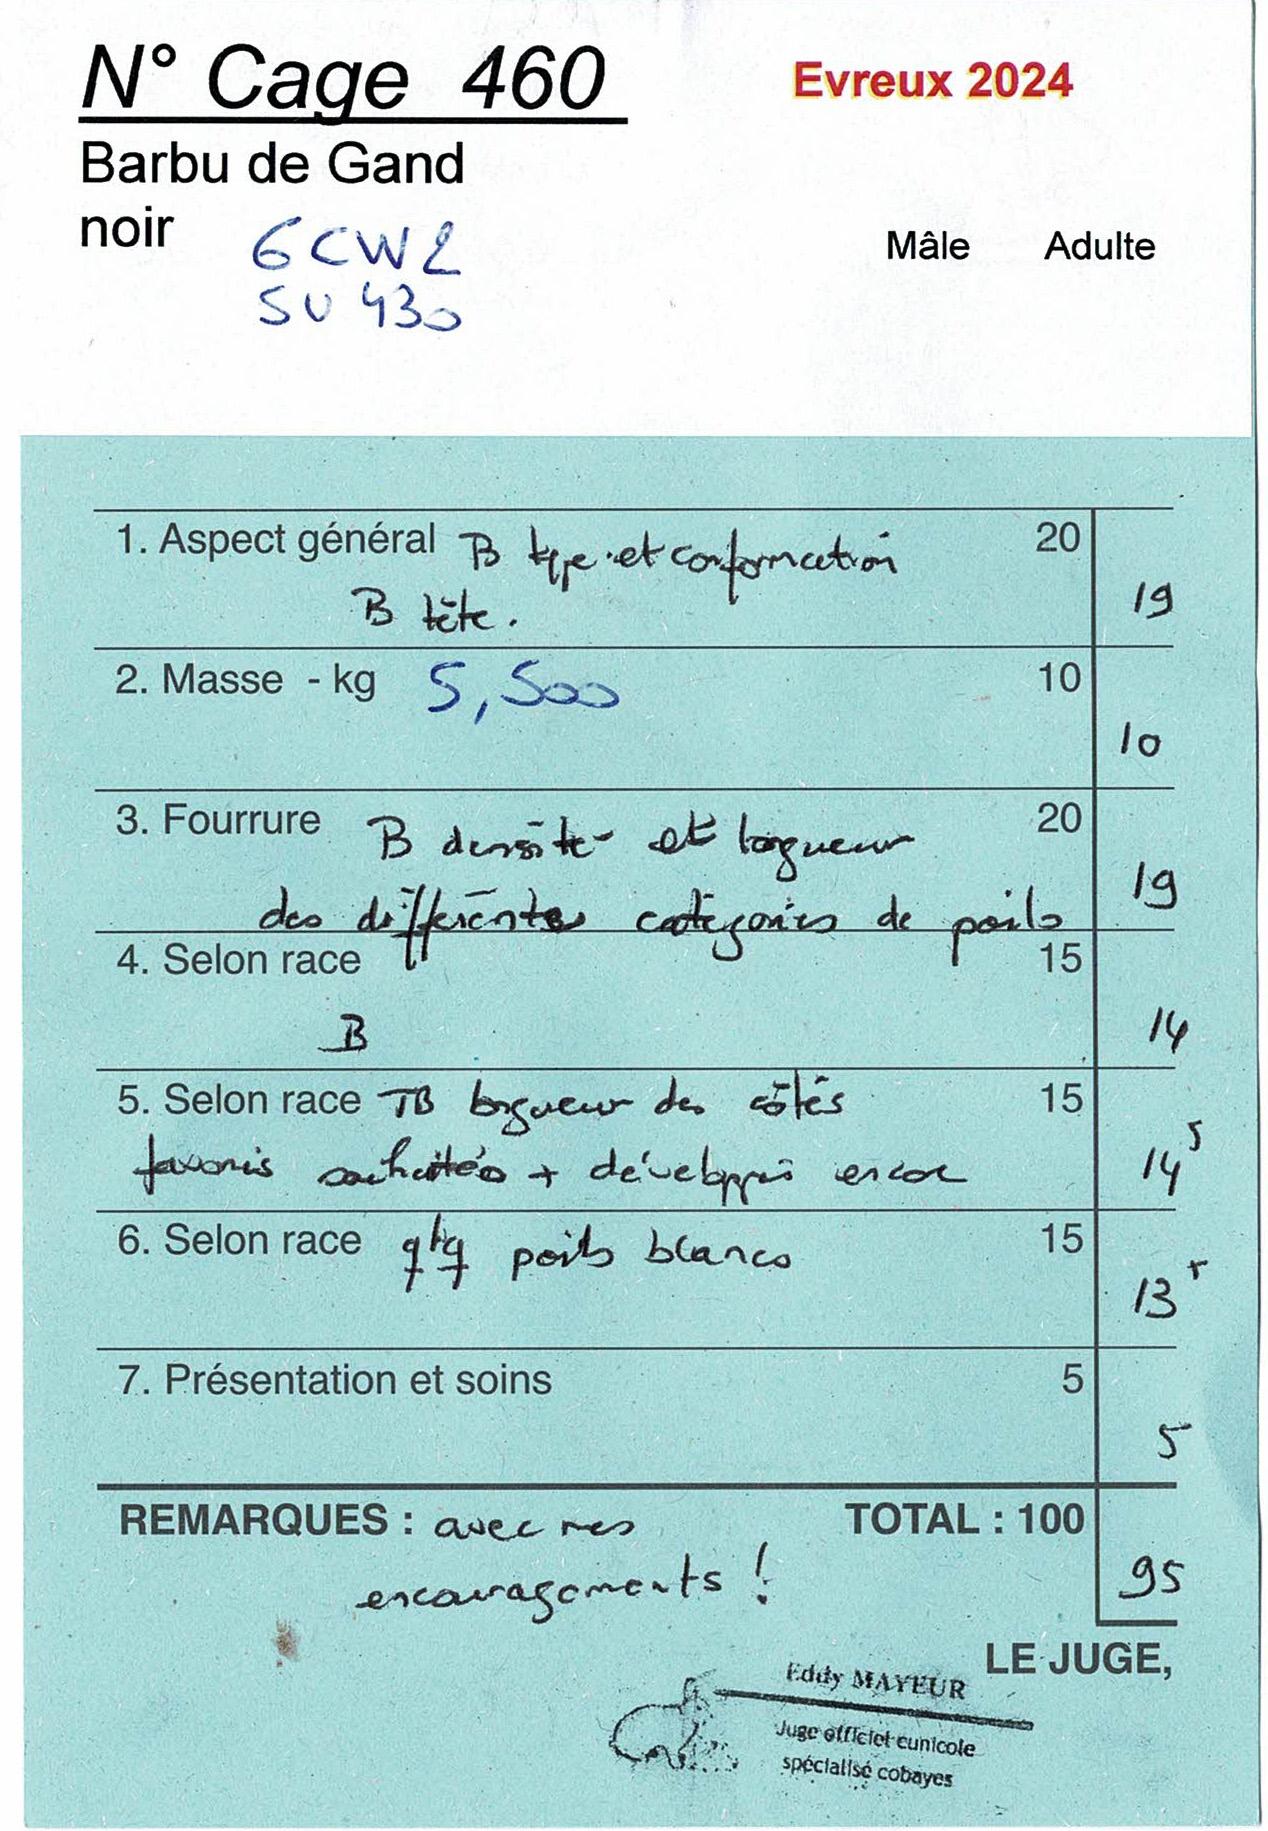 N° Cage 460
Evreux 2024
Barbu de Gand
noir
6CW2
Mâle Adulte
SU 430
1. Aspect général B type et conformation 20
B tête. 19
2. Masse - kg 5,500 10
10
3. Fourrure B densité et longueur 20
19
des différentes catégories de poils
4. Selon race 15
B 14
5. Selon race TB longueur des côtés 15
favoris souhaités + développés encore 14 5
6. Selon race qlq poils blancs 15
13 5
7. Présentation et soins 5
5
REMARQUES : avec mes TOTAL : 100
encouragements ! 95
LE JUGE,
Eddy MAYEUR
Juge officiel cunicole
spécialisé cobayes